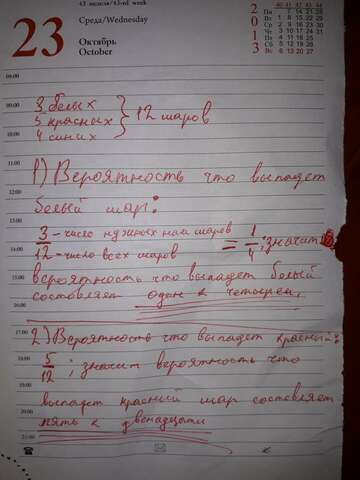 43 неделя/43-rd week
23
Среда/Wednesday
Октябрь
October
2013
40 41 42 43 44
Пн 7 14 21 28
Вт 1 8 15 22 29
Ср 2 9 16 23 30
Чт 3 10 17 24 31
Пт 4 11 18 25
Сб 5 12 19 26
Вс 6 13 20 27
08:00
09:00
3 белых
5 красных } 12 шаров
10:00
4 синих
11:00
1) Вероятность что выпадет
12:00
белый шар:
13:00
3 - число нужных нам шаров = 1/4; значит
14:00
12 - число всех шаров
15:00
вероятность что выпадет белый
составляет один к четырем.
16:00
17:00
2) Вероятность что выпадет красный:
18:00
5/12; значит вероятность что
19:00
выпадет красный шар составляет
20:00
пять к двенадцати
21:00